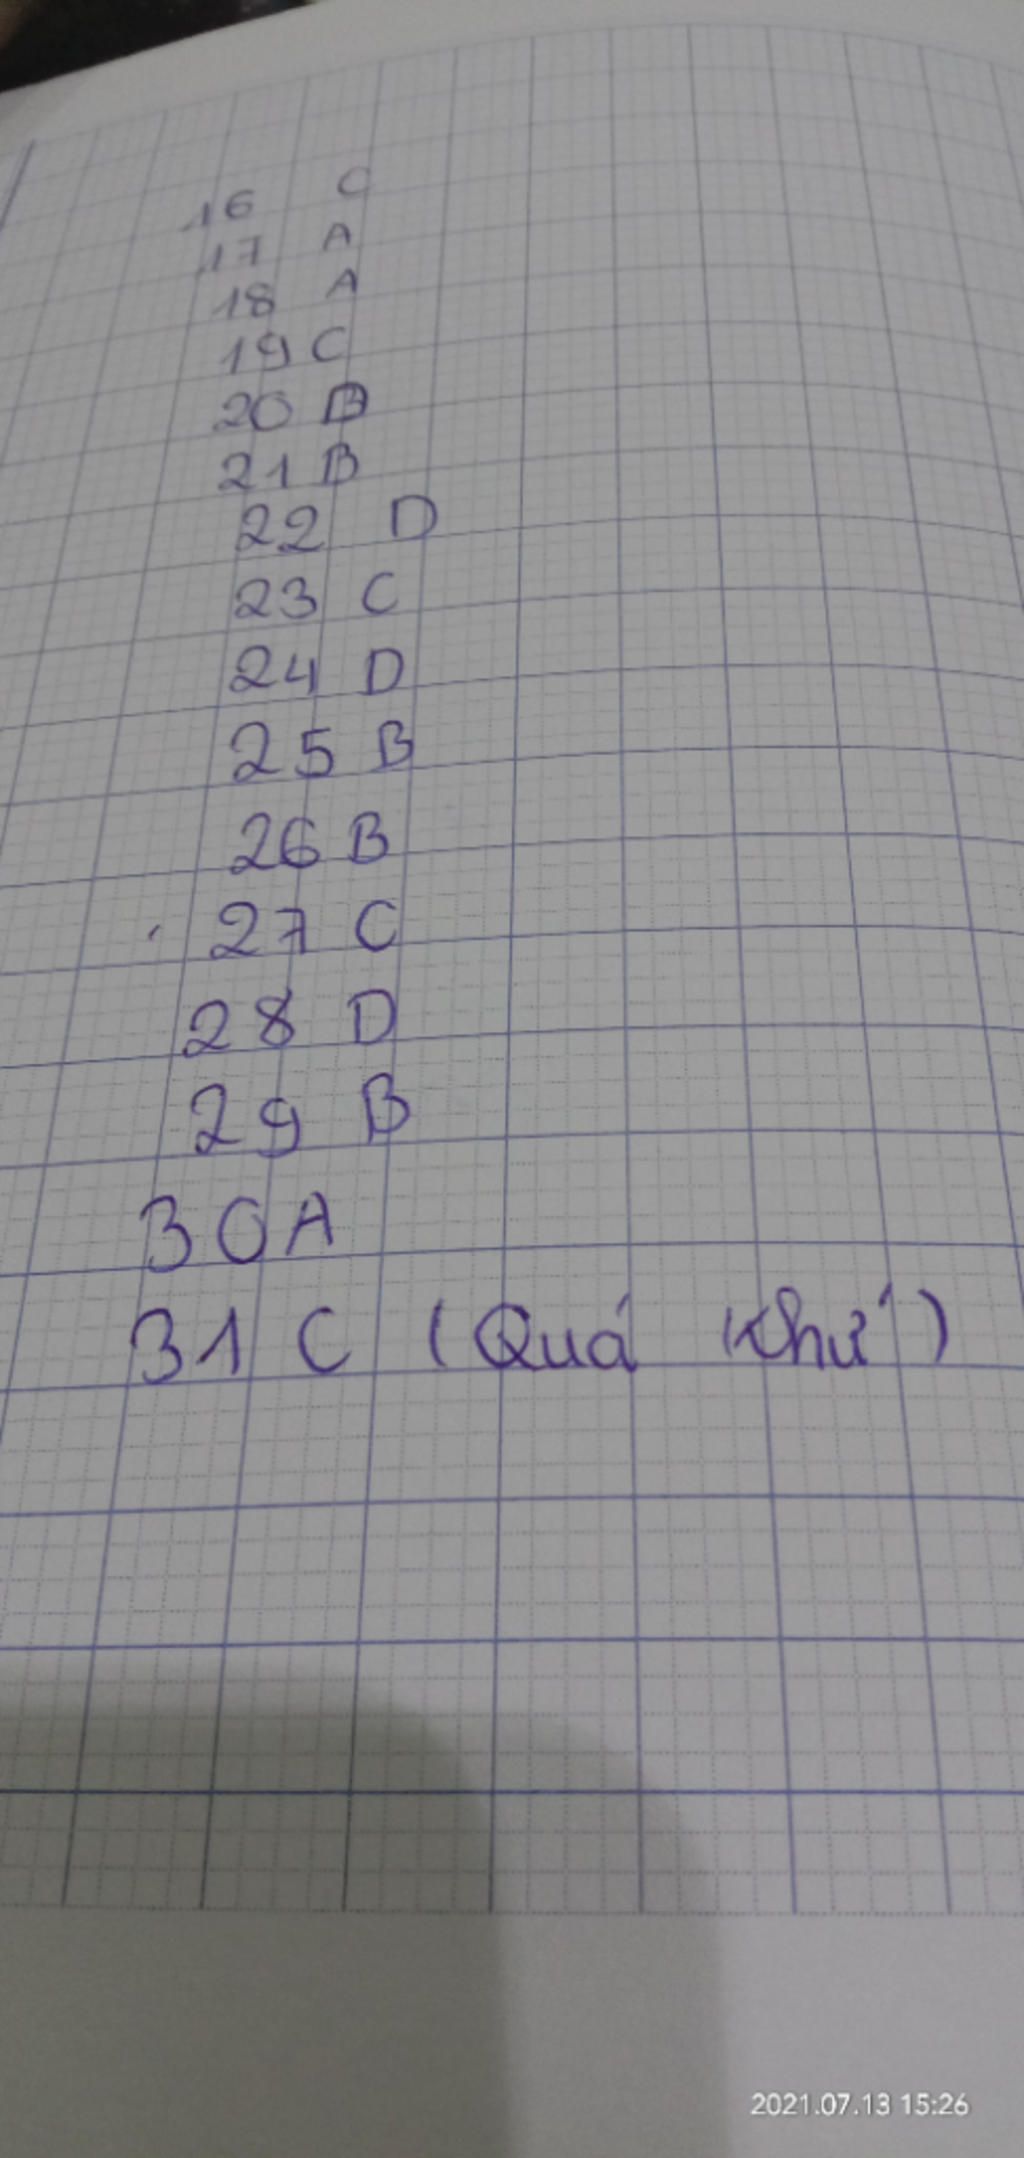 16 C
17 A
18 A
19 C
20 B
21 B
22 D
23 C
24 D
25 B
26 B
27 C
28 D
29 B
30 A
31 C (Quá Khứ)
2021.07.13 15:26